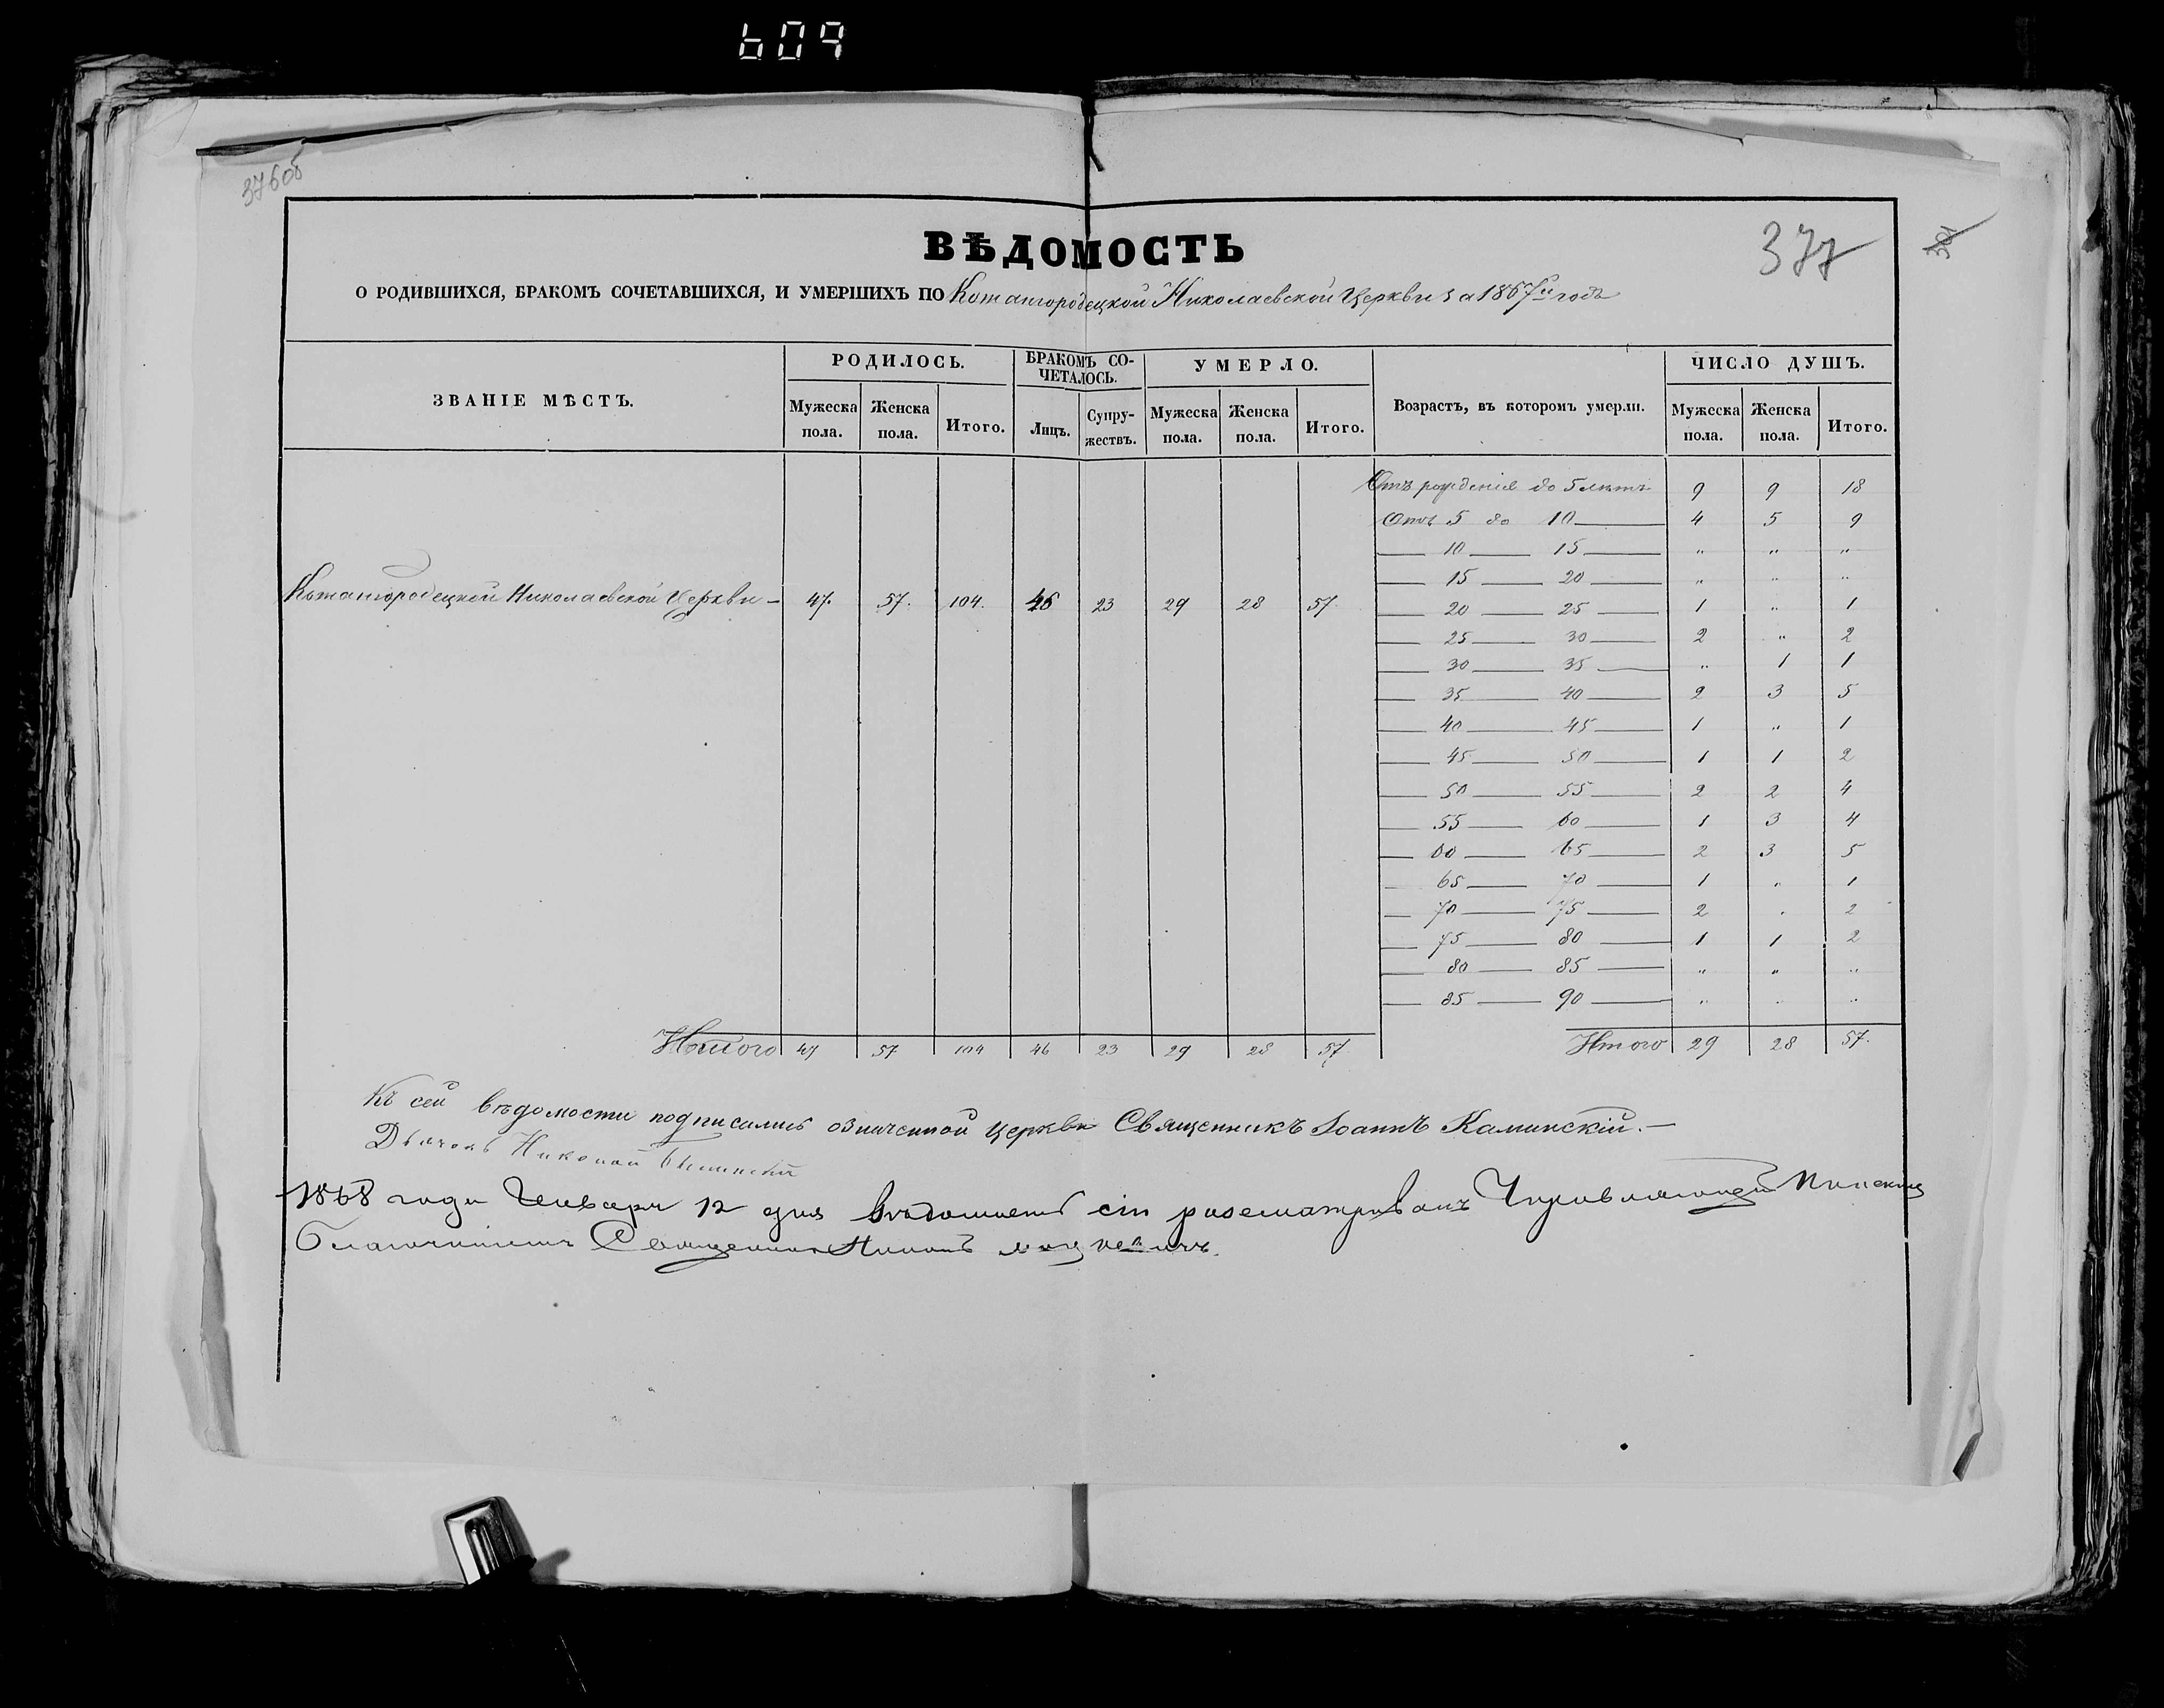 609
376об
ВѢДОМОСТЬ
377
О РОДИВШИХСЯ, БРАКОМЪ СОЧЕТАВШИХСЯ, И УМЕРШИХЪ ПО Кожангородецкой Николаевской Церкви за 1867й годъ
ЗВАНІЕ МѢСТЪ. РОДИЛОСЬ. БРАКОМЪ СО-ЧЕТАЛОСЬ. УМЕРЛО. Возрастъ, въ которомъ умерли. ЧИСЛО ДУШЪ.
Мужеска пола. Женска пола. Итого. Лицъ. Супру-жествъ. Мужеска пола. Женска пола. Итого. Мужеска пола. Женска пола. Итого.
Отъ рожденія до 5 лѣтъ 9 9 18
Отъ 5 до 10 4 5 9
10 15 " " "
15 20 " " "
Кожангородецкой Николаевской Церкви 47. 57. 104. 46 23 29 28 57.
20 25 1 " 1
25 30 2 " 2
30 35 " 1 1
35 40 2 3 5
40 45 1 " 1
45 50 1 1 2
50 55 2 2 4
55 60 1 3 4
60 65 2 3 5
65 70 1 " 1
70 75 2 " 2
75 80 1 1 2
80 85 " " "
85 90 " " "
Итого 47 57 104 46 23 29 28 57. Итого 29 28 57.
Къ сей вѣдомости подписались означенной Церкви Священникъ Іоаннъ Каминскій.
Дьячокъ Николай
1868 года Генваря 12 дня вѣдомость сію разсматривалъ Управляющій
Благочиніемъ Священникъ